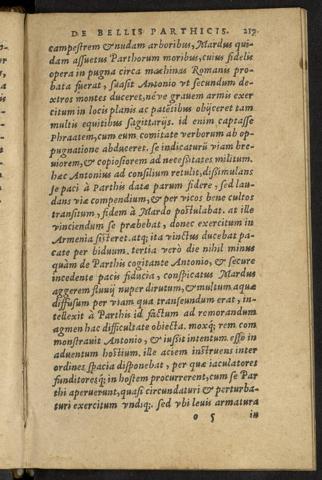 DE BELLIS PARTHICIS. 217
campestrem & nudam arboribus, Mardus qui-
dam assuetus Parthorum moribus, cuius fidelis
opera in pugna circa machinas Romanis pro-
bata fuerat, suasit Antonio vt secundum de-
xtros montes duceret, néve grauem armis exer
citum in locis planis ac patẽtibus obijceret tam
multis equitibus sagittarijs. id enim captasse
Phraatem, cum eum comitate verborum ab op-
pugnatione abduceret. se indicaturũ viam bre-
uiorem, & copiosiorem ad necessitates militum.
hæc Antonius ad consilium retulit, dissimulans
se paci à Parthis datæ parum fidere, sed lau-
dans viæ compendium, & per vicos bene cultos
transitum, fidem à Mardo postulabat. at ille
vinciendum se præbebat, donec exercitum in
Armenia sisteret. atq; ita vinctus ducebat pa-
cate per biduum. tertia verò die nihil minus
quàm de Parthis cogitante Antonio, & secure
incedente pacis fiducia, conspicatus Mardus
aggerem fluuij nuper dirutum, & multum aquæ
diffusum per viam qua transeundum erat, in-
tellexit à Parthis id factum ad remorandum
agmen hac difficultate obiecta. moxq; rem com
monstrauit Antonio, & iussit intentum esse in
aduentum hostium. ille aciem instruens inter
ordines spacia disponebat, per quæ iaculatores
funditoresq; in hostem procurrerent, cum se Par
thi aperuerunt, quasi circundaturi & perturba-
turi exercitum vndiq;. sed vbi leuis armatura
o 5 in